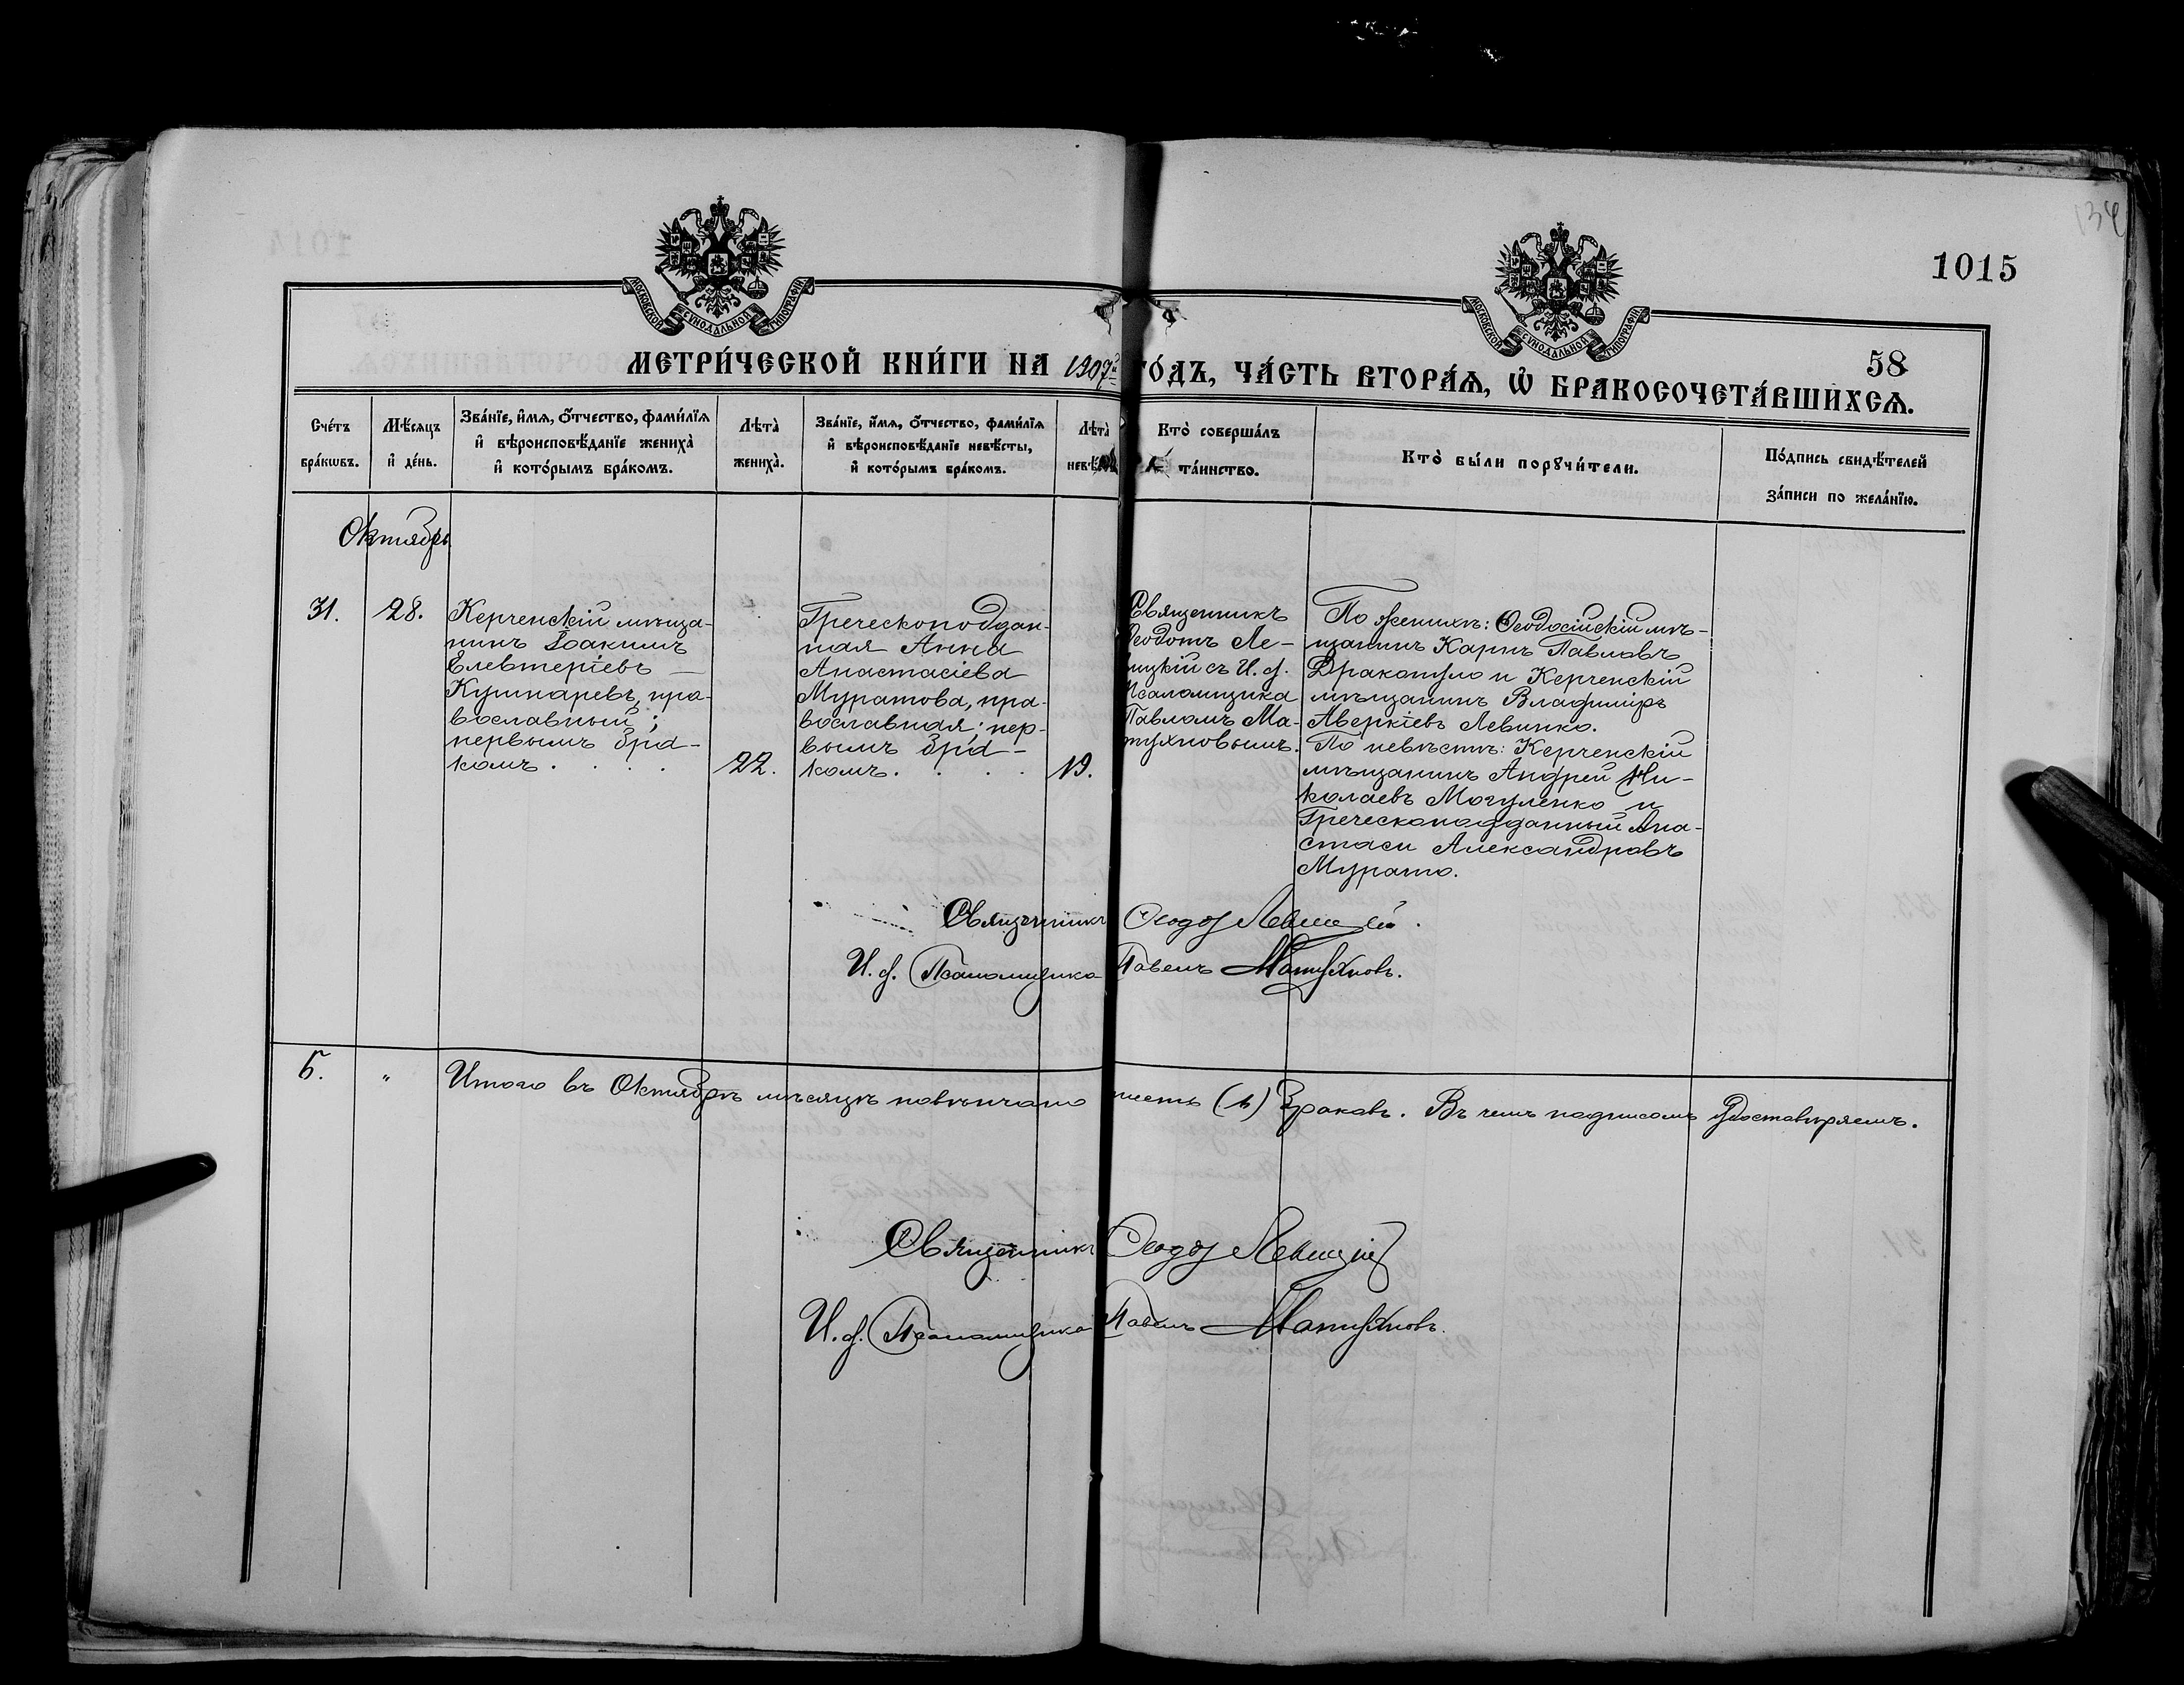 134
1015
58
МОСКОВСКОЙ СѴНОДАЛЬНОЙ ТИПОГРАФІИ
МОСКОВСКОЙ СѴНОДАЛЬНОЙ ТИПОГРАФІИ
МЕТРИ́ЧЕСКОЙ КНИ́ГИ НА 1907й ГО́ДЪ, ЧА́СТЬ ВТОРА́Ѧ, Ѡ҆ БРАКОСОЧЕТА́ВШИХСѦ.
Сче́тъ
бра́кѡвъ.
Мѣ́сяцъ
и҆ де́нь.
Зва́нїе, и҆́мѧ, ѻ҆́тчество, фами́лїѧ
и҆ вѣроисповѣ́данїе жениха̀
и҆ кото́рымъ бра́комъ.
Лѣта̀
жениха̀.
Зва́нїе, и҆́мѧ, ѻ҆́тчество, фами́лїѧ
и҆ вѣроисповѣ́данїе невѣ́сты,
и҆ кото́рымъ бра́комъ.
Лѣта̀
Кто̀ соверша́лъ
та́инство.
Кто̀ бы́ли порꙋчи́тели.
По́дпись свидѣ́телей
за́писи по жела́нїю.
Октябрь
31.
28.
Керченскій мѣща-
нинъ Іоакимъ
Елевтеріевъ
Кушнаревъ, пра-
вославный;
первымъ бра-
комъ . . . .
22.
Греческоподдан-
ная Анна
Анастасіева
Муратова, пра-
вославная; пер-
вымъ бра-
комъ. . . .
19.
Священникъ
Ѳеодотъ Ле-
вицкій съ И. д.
Псаломщика
Павломъ Ма-
тухновымъ.
По женихѣ: Ѳеодосійскій мѣ-
щанинъ Карпъ Павловъ
Дракопуло и Керченскій
мѣщанинъ Владиміръ
Аверкіевъ Левинко.
По невѣстѣ: Керченскій
мѣщанинъ Андрей Ни-
колаевъ Могуленко и
Греческоподданный Ана-
стаси Александровъ
Мурато.
Священникъ Ѳеодотъ Левицкій.
И. д. Псаломщика Павелъ Матухновъ.
6.
"
Итого въ Октябрѣ мѣсяцѣ повѣнчано шесть (6) браковъ. Въ чемъ подписомъ удостовѣряемъ.
Священникъ Ѳеодотъ Левицкій
И. д. Псаломщика Павелъ Матухновъ.